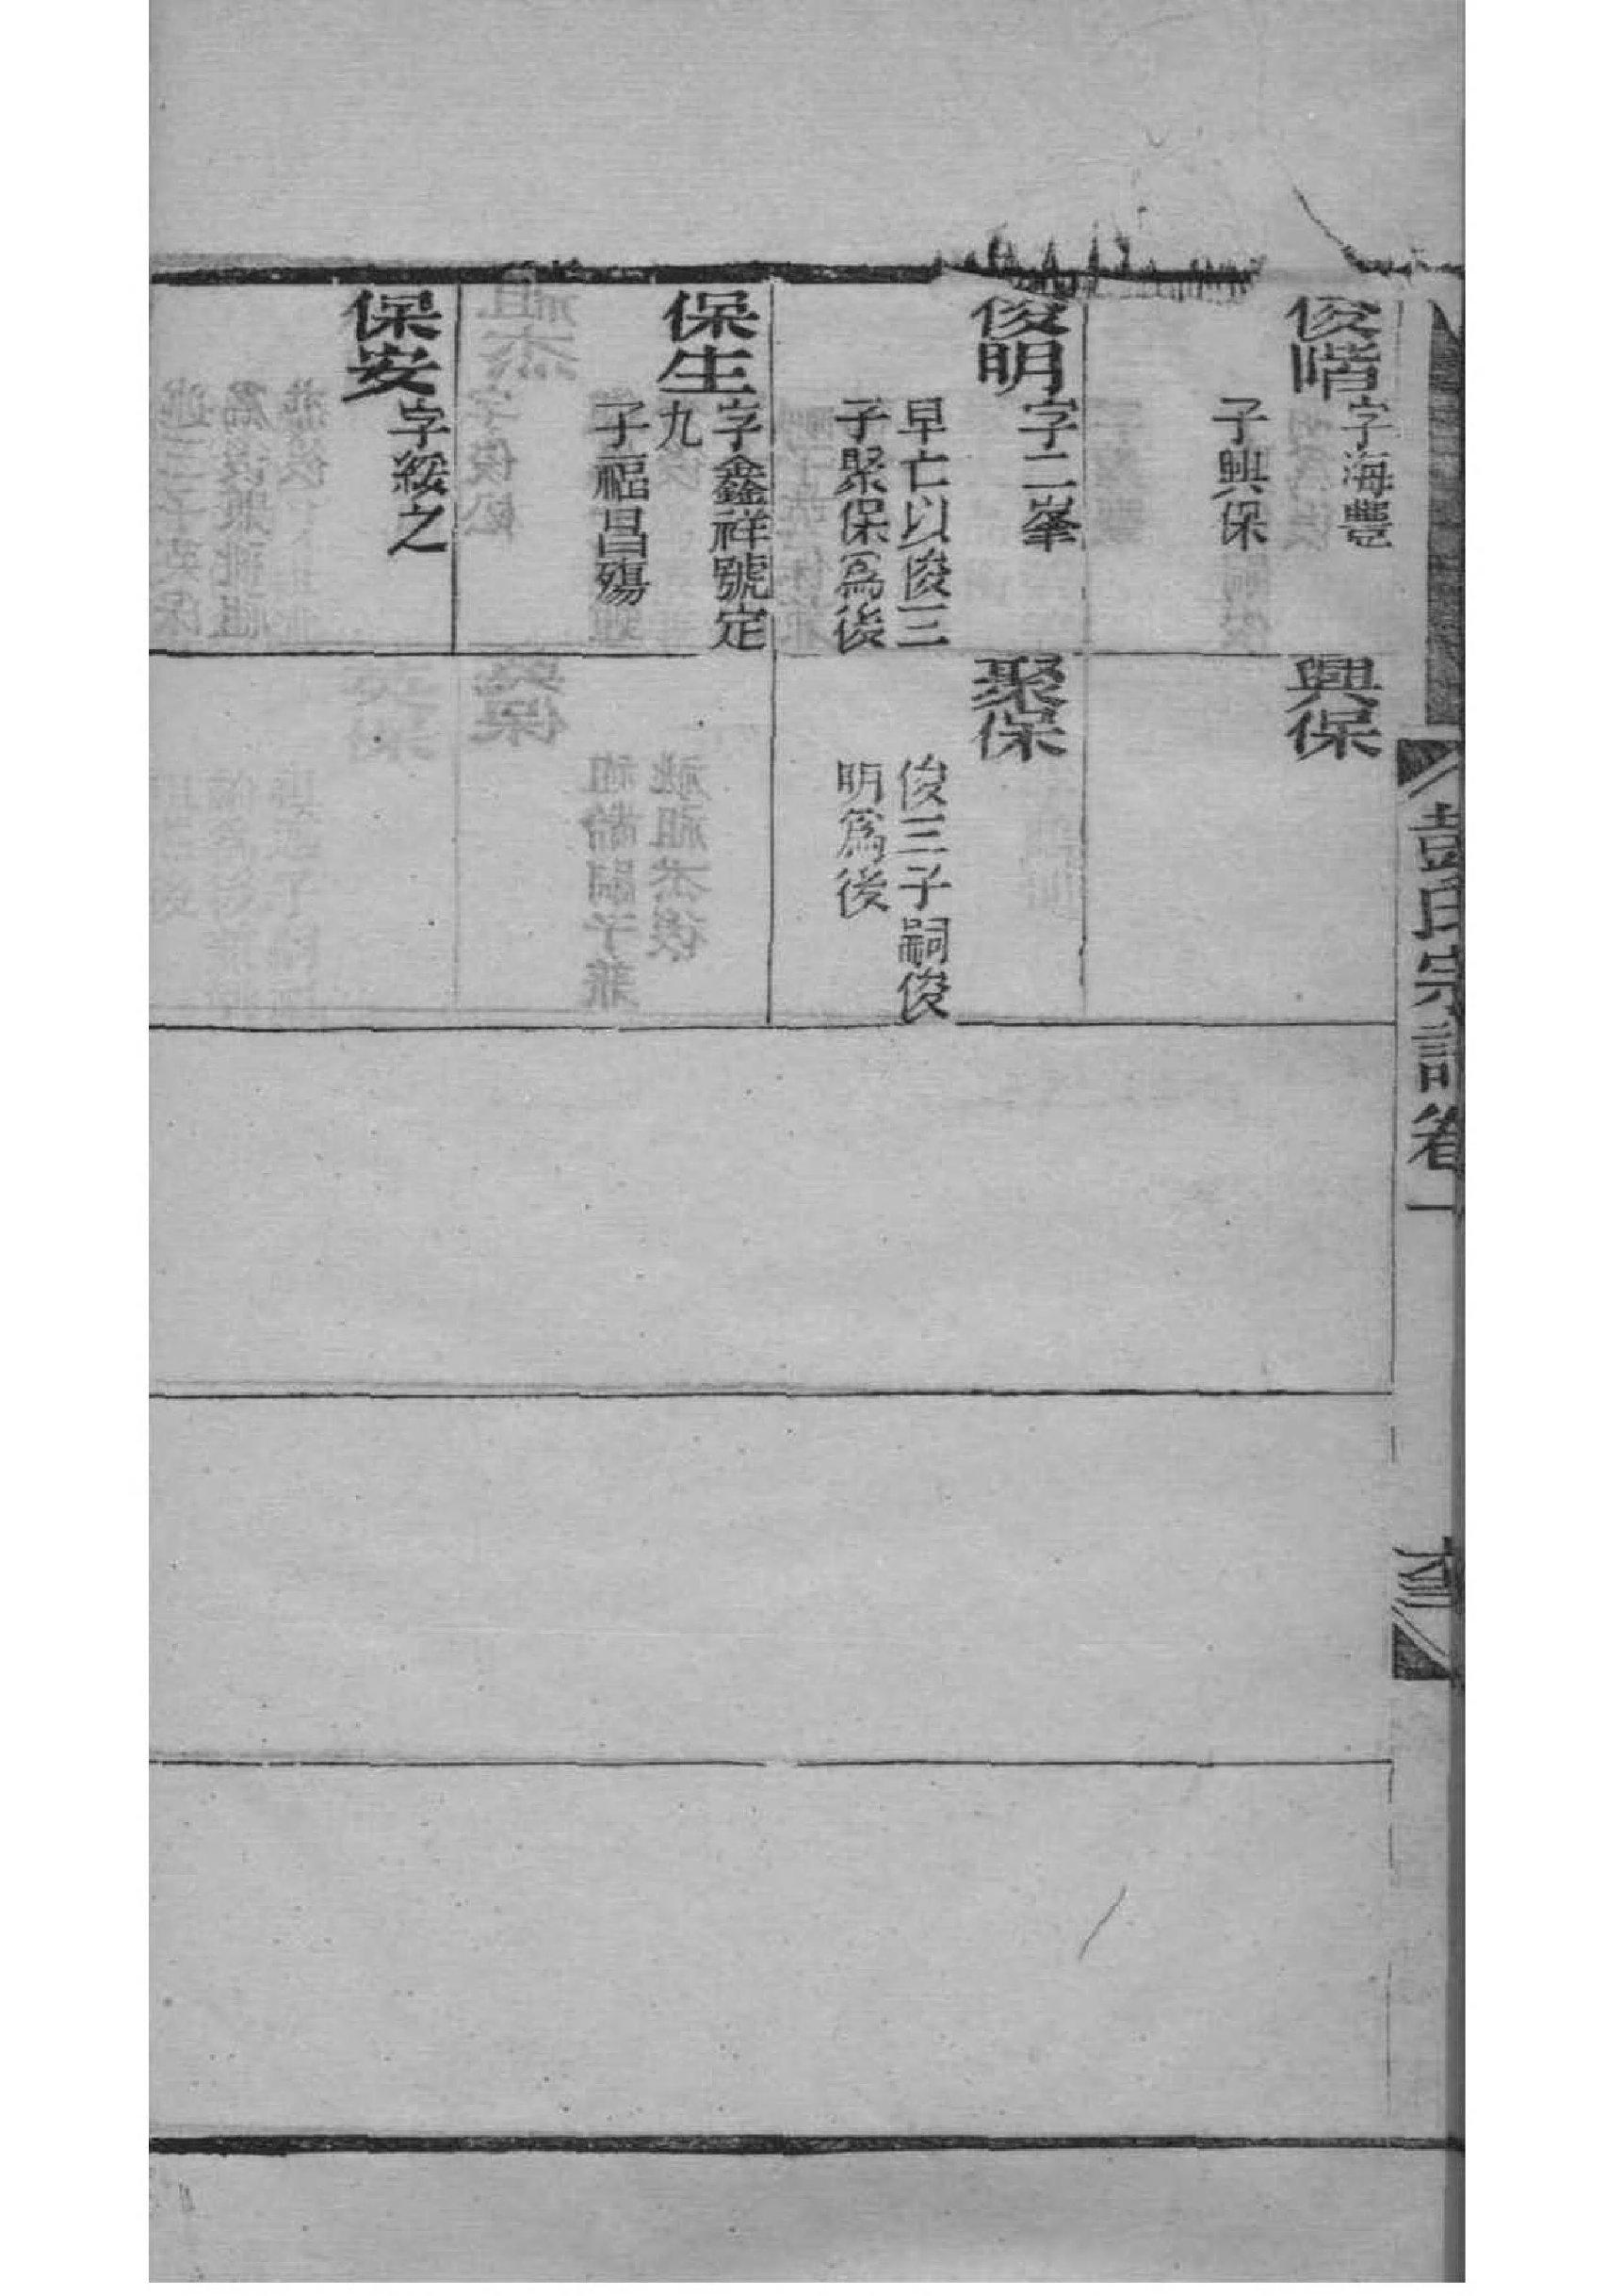 俊喈
字海豐
子興保
俊明
字二峯
早亡以俊三
子聚保爲後
保生
字鑫祥號定
九
子福昌殤
保安
字綏之
興保
聚保
俊三子嗣俊
明爲後
彭氏宗譜卷一